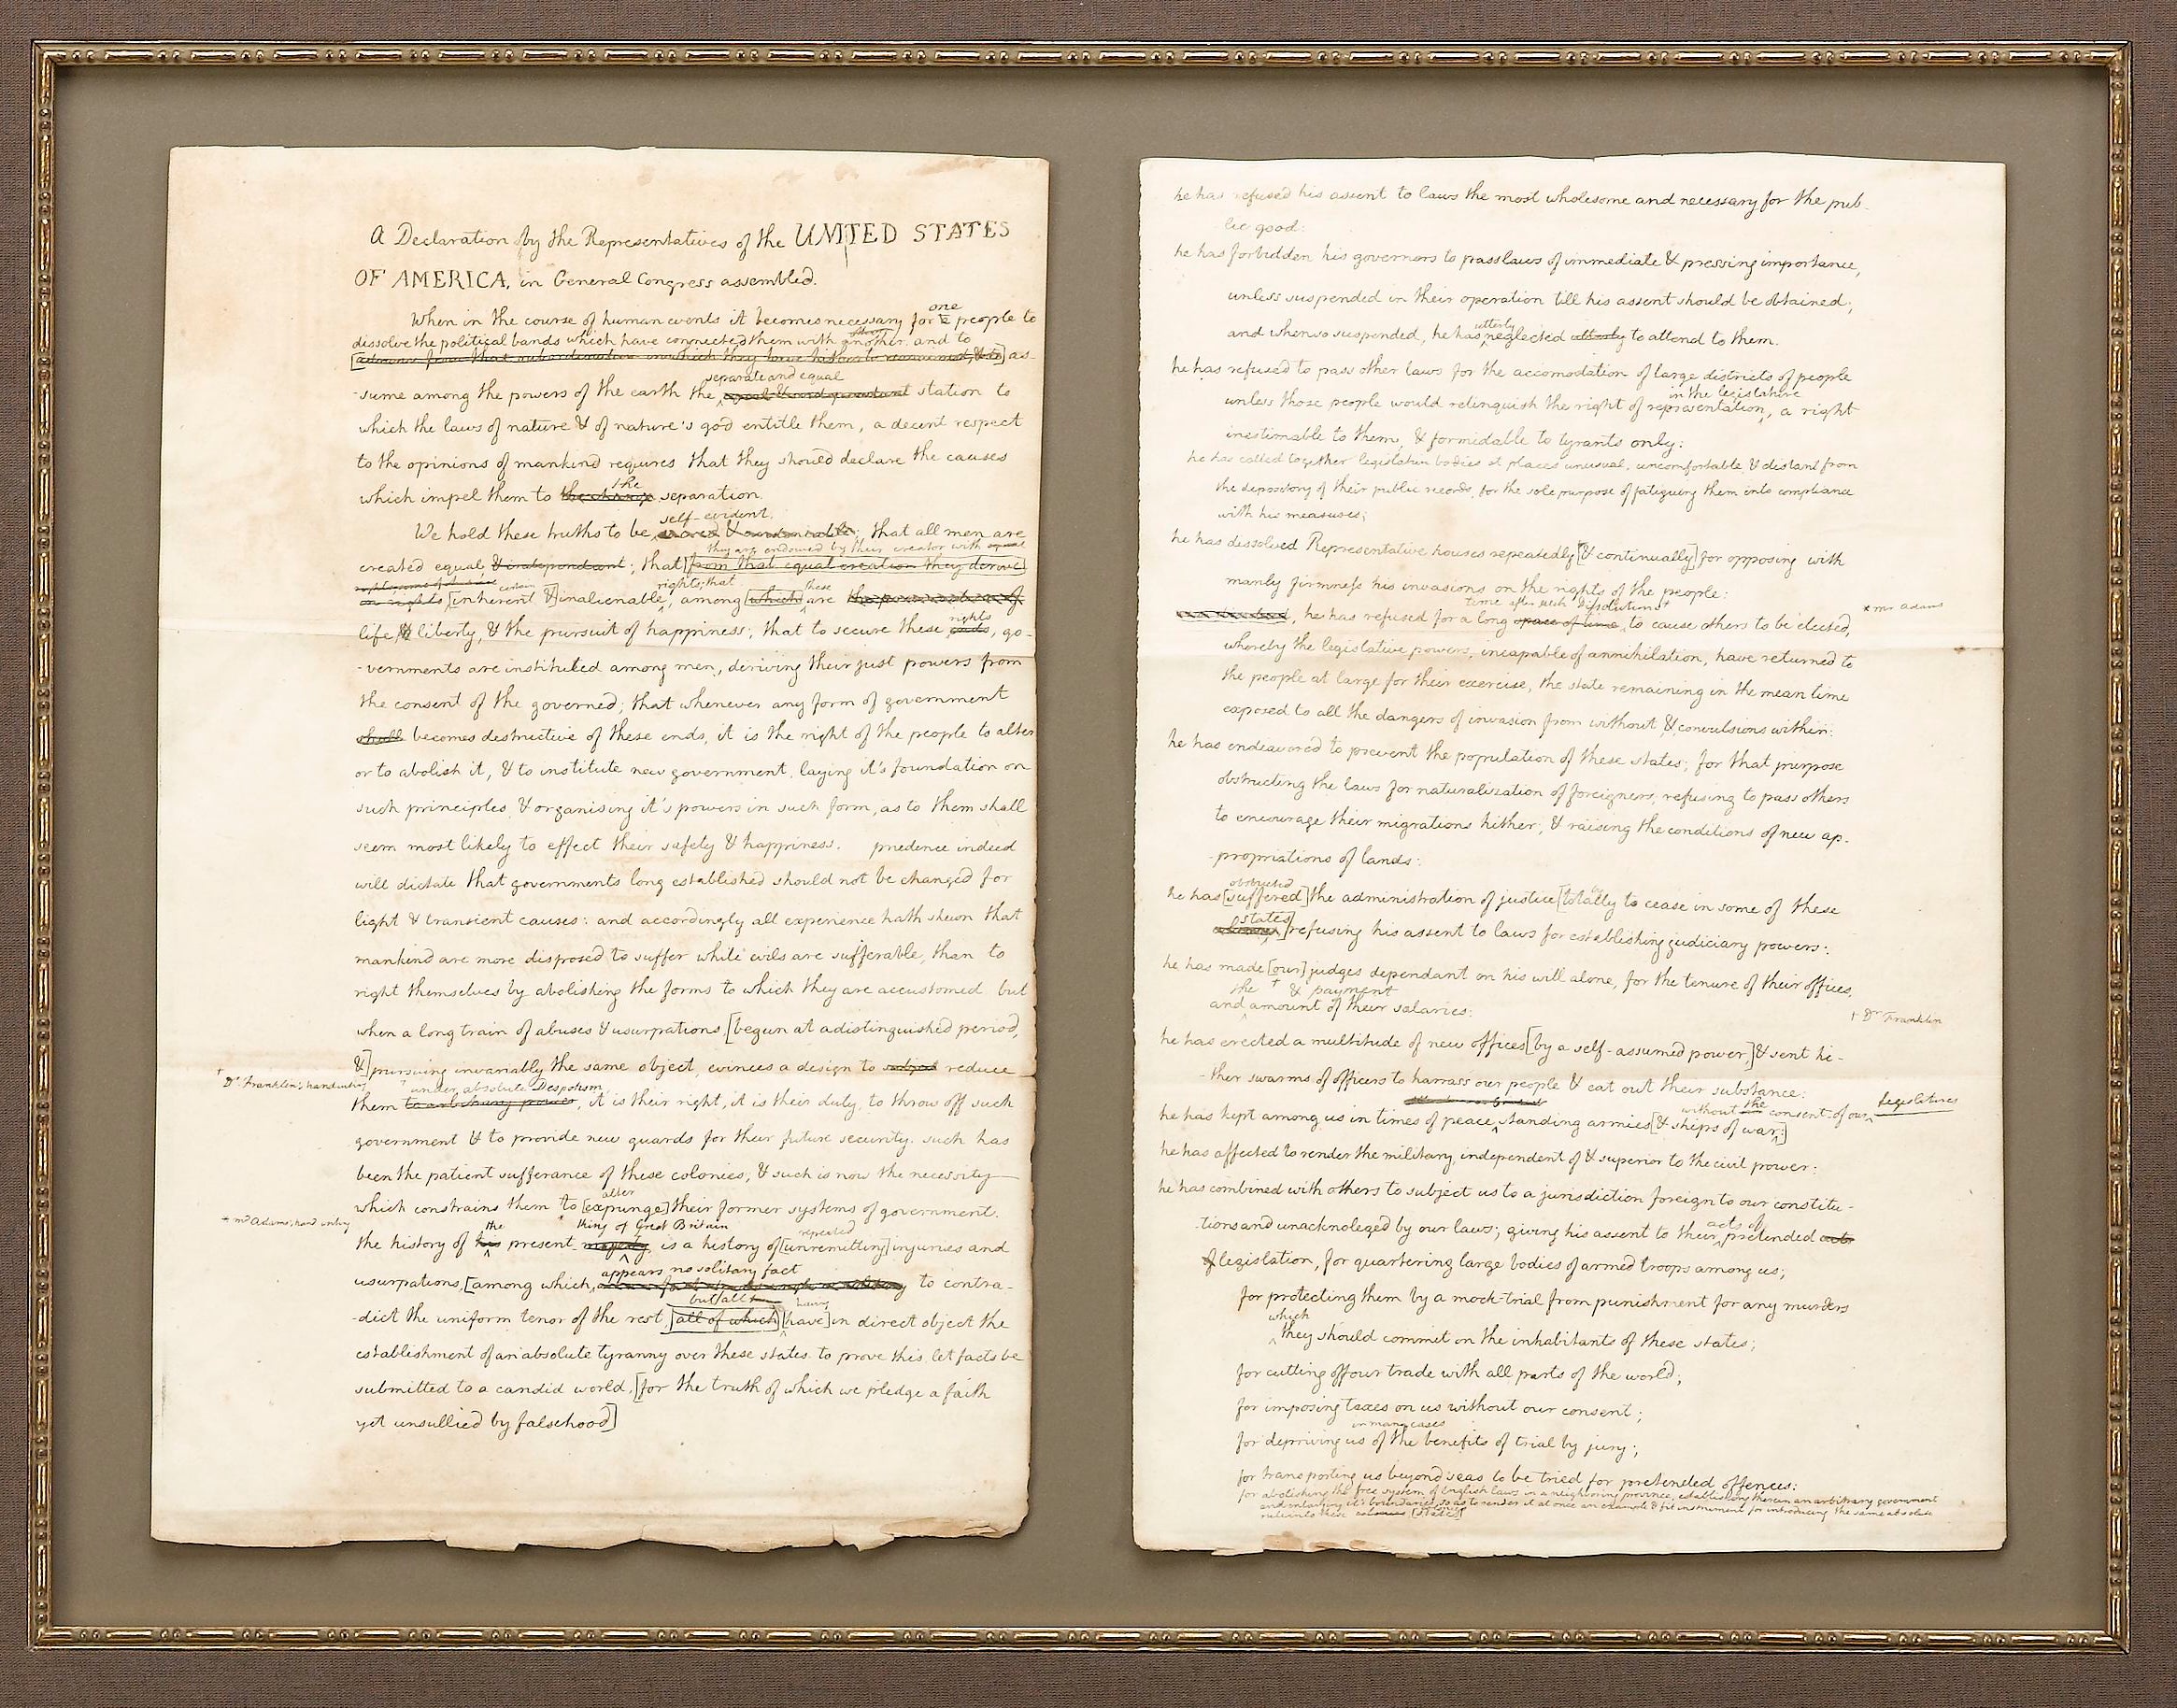 A Declaration by the Representatives of the UNITED STATES
OF AMERICA, in General Congress assembled.
one
When in the course of human events it becomes necessary for a people to
dissolve the political bands which have connected them with another, and to
[advance from that subordination in which they have hitherto remained, & to] as-
separate and equal
-sume among the powers of the earth the equal & independant station to
which the laws of nature & of nature's god entitle them, a decent respect
to the opinions of mankind requires that they should declare the causes
the
which impel them to the change separation.
self-evident,
We hold these truths to be sacred & undeniable; that all men are
they are endowed by their creator with equal
created equal & independant; that [from that equal creation they derive]
certain rights; that these
in rights [inherent &] inalienable, among [which] are the preservation of
rights
life, & liberty, & the pursuit of happiness; that to secure these ends, go-
-vernments are instituted among men, deriving their just powers from
the consent of the governed; that whenever any form of government
shall becomes destructive of these ends, it is the right of the people to alter
or to abolish it, & to institute new government, laying it's foundation on
such principles & organising it's powers in such form, as to them shall
seem most likely to effect their safety & happiness. prudence indeed
will dictate that governments long established should not be changed for
light & transient causes: and accordingly all experience hath shewn that
mankind are more disposed to suffer while evils are sufferable, than to
right themselves by abolishing the forms to which they are accustomed but
when a long train of abuses & usurpations, [begun at a distinguished period,
&] pursuing invariably the same object, evinces a design to subject reduce
† Dr. Franklin's handwriting † under absolute Despotism
them to arbitrary power, it is their right, it is their duty, to throw off such
government & to provide new guards for their future security. such has
been the patient sufferance of these colonies; & such is now the necessity
alter
which constrains them to [expunge] their former systems of government.
* mr Adams' hand writing the * king of Great Britain repeated
the history of his present majesty, is a history of [unremitting] injuries and
appears no solitary fact
usurpations, [among which, to contra-
but all having
-dict the uniform tenor of the rest, [all of which] [have] in direct object the
establishment of an absolute tyranny over these states. to prove this, let facts be
submitted to a candid world, [for the truth of which we pledge a faith
yet unsullied by falsehood]
he has refused his assent to laws the most wholesome and necessary for the pub-
lic good:
he has forbidden his governors to pass laws of immediate & pressing importance,
unless suspended in their operation till his assent should be obtained;
utterly
and when so suspended, he has neglected utterly to attend to them.
he has refused to pass other laws for the accomodation of large districts of people
in the legislature
unless those people would relinquish the right of representation, a right
inestimable to them, & formidable to tyrants only:
he has called together legislative bodies at places unusual, uncomfortable & distant from
the depository of their public records, for the sole purpose of fatiguing them into compliance
with his measures;
he has dissolved Representative houses repeatedly [& continually] for opposing with
manly firmness his invasions on the rights of the people:
time after such Dissolutions* * mr Adams
he has refused for a long space of time, to cause others to be elected,
whereby the legislative powers, incapable of annihilation, have returned to
the people at large for their exercise, the state remaining in the mean time
exposed to all the dangers of invasion from without & convulsions within:
he has endeavored to prevent the population of these states; for that purpose
obstructing the laws for naturalization of foreigners, refusing to pass others
to encourage their migrations hither, & raising the conditions of new ap-
-propriations of lands:
obstructed by
he has [suffered] the administration of justice [totally to cease in some of these
states
colonies] refusing his assent to laws for establishing judiciary powers:
he has made [our] judges dependant on his will alone, for the tenure of their offices,
the † & payment
and amount of their salaries: † Dr Franklin
he has erected a multitude of new offices [by a self-assumed power,] & sent hi-
-ther swarms of officers to harrass our people & eat out their substance:
without the consent of our legislatures
he has kept among us in times of peace standing armies [& ships of war:]
he has affected to render the military, independent of & superior to the civil power:
he has combined with others to subject us to a jurisdiction foreign to our constitu-
acts of
-tions and unacknoleged by our laws; giving his assent to their pretended acts
of legislation, for quartering large bodies of armed troops among us;
for protecting them by a mock-trial from punishment for any murders
which
they should commit on the inhabitants of these states;
for cutting off our trade with all parts of the world;
for imposing taxes on us without our consent;
in many cases
for depriving us of the benefits of trial by jury;
for transporting us beyond seas to be tried for pretended offences:
for abolishing the free system of English laws in a neighboring province, establishing therein an arbitrary government
and enlarging it's boundaries so as to render it at once an example & fit instrument for introducing the same absolute
rule into these colonies [states]